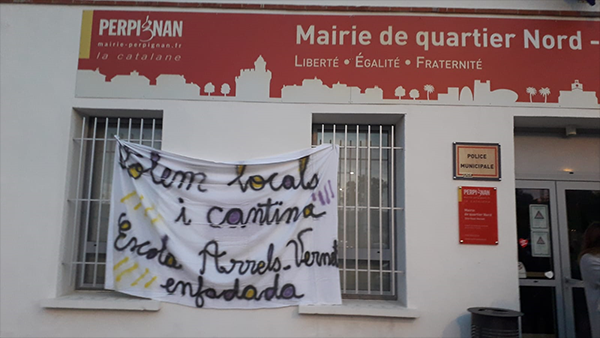 PERPIGNAN
mairie-perpignan.fr
la catalane
Mairie de quartier Nord -
LIBERTÉ • ÉGALITÉ • FRATERNITÉ
POLICE
MUNICIPALE
PERPIGNAN
Mairie
de quartier Nord
Volem locals
i cantina
Escola Arrels-Vernet
enfadada